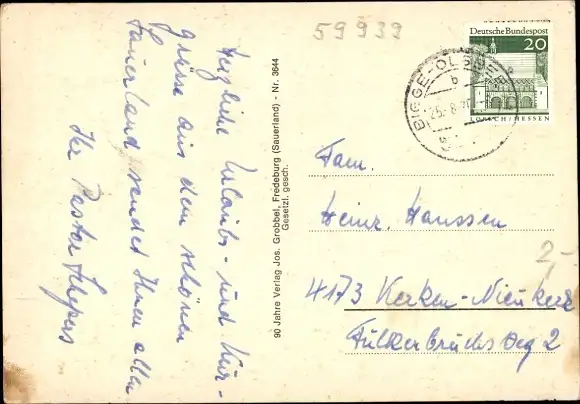 59939
Deutsche Bundespost
20
LORSCH/HESSEN
BIGGE-OLSBERG
b
25. 8.
Herzliche Urlaubs- und Kur-
grüsse aus dem schönen
Sauerland sendet Ihnen allen
Ihr Pastor Schepers
90 Jahre Verlag Jos. Grobbel, Fredeburg (Sauerland) - Nr. 3644
Gesetzl. gesch.
Fam.
Heinr. Hanssen
2,-
4173 Kerken-Nieukerk
Fülkerbruchsweg 2